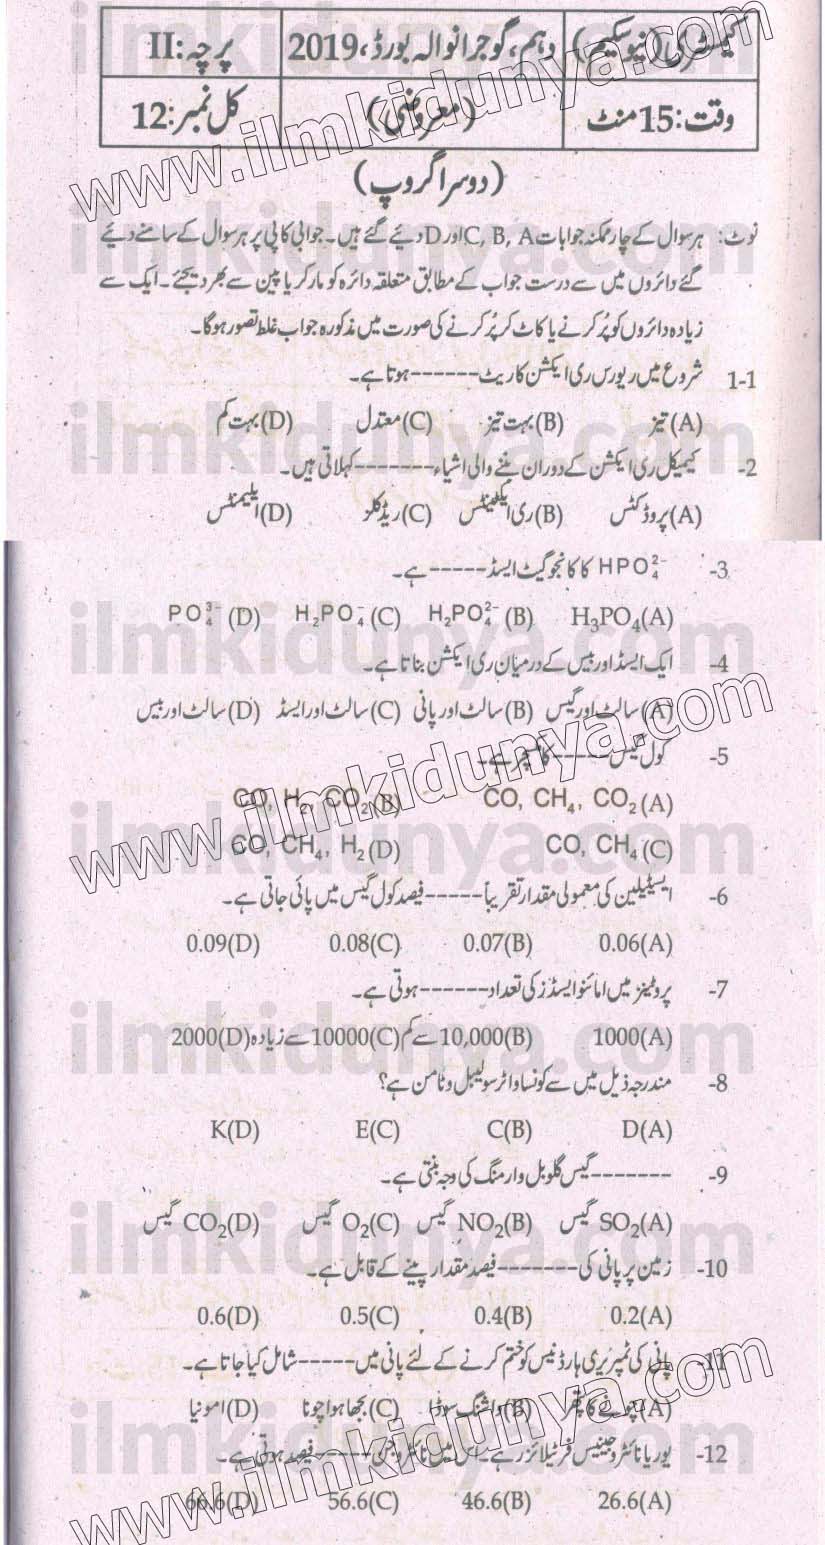 کیمسٹری (نیو سکیم) دہم، گوجرانوالہ بورڈ، 2019 پرچہ: II
وقت: 15 منٹ (معروضی) کل نمبر: 12
(دوسرا گروپ)
نوٹ: ہر سوال کے چار ممکنہ جوابات C, B, A اور D دیئے گئے ہیں۔ جوابی کاپی پر ہر سوال کے سامنے دیئے
گئے دائروں میں سے درست جواب کے مطابق متعلقہ دائرہ کو مارکر یا پین سے بھر دیجئے۔ ایک سے
زیادہ دائروں کو پُر کرنے یا کاٹ کر پُر کرنے کی صورت میں مذکورہ جواب غلط تصور ہوگا۔
1-1 شروع میں ریورس ری ایکشن کا ریٹ ------ ہوتا ہے۔
(A) تیز (B) بہت تیز (C) معتدل (D) بہت کم
2- کیمیکل ری ایکشن کے دوران بننے والی اشیاء ------- کہلاتی ہیں۔
(A) پروڈکٹس (B) ری ایکٹینٹس (C) ریڈیکلز (D) ایلیمنٹس
3- HPO₄²⁻ کا کانجوگیٹ ایسڈ ----- ہے۔
(A) H₃PO₄ (B) H₂PO₄²⁻ (C) H₂PO₄⁻ (D) PO₄³⁻
4- ایک ایسڈ اور بیس کے درمیان ری ایکشن بناتا ہے۔
(A) سالٹ اور گیس (B) سالٹ اور پانی (C) سالٹ اور ایسڈ (D) سالٹ اور بیس
5- کول گیس ------ کا مکسچر ہے۔
(A) CO, CH₄, CO₂ (B) CO, H₂, CO₂
(C) CO, CH₄ (D) CO, CH₄, H₂
6- ایسیٹیلین کی معمولی مقدار تقریباً ----- فیصد کول گیس میں پائی جاتی ہے۔
(A) 0.06 (B) 0.07 (C) 0.08 (D) 0.09
7- پروٹینز میں امائنو ایسڈز کی تعداد ------ ہوتی ہے۔
(A) 1000 (B) 10,000 سے کم (C) 10000 سے زیادہ (D) 2000
8- مندرجہ ذیل میں سے کونسا واٹر سولیبل وٹامن ہے؟
(A) D (B) C (C) E (D) K
9- ------- گیس گلوبل وارمنگ کی وجہ بنتی ہے۔
(A) SO₂ گیس (B) NO₂ گیس (C) O₂ گیس (D) CO₂ گیس
10- زمین پر پانی کی ------- فیصد مقدار پینے کے قابل ہے۔
(A) 0.2 (B) 0.4 (C) 0.5 (D) 0.6
11- پانی کی ٹمپریری ہارڈنیس کو ختم کرنے کے لئے پانی میں ----- شامل کیا جاتا ہے۔
(A) چونے کا پتھر (B) واشنگ سوڈا (C) بجھا ہوا چونا (D) امونیا
12- یوریا نائٹروجینیس فرٹیلائزر ہے۔ اس میں نائٹروجن ----- فیصد ہوتی ہے۔
(A) 26.6 (B) 46.6 (C) 56.6 (D) 66.6
www.ilmkidunya.com
www.ilmkidunya.com
www.ilmkidunya.com
ilmkidunya.com
ilmkidunya.com
ilmkidunya.com
ilmkidunya.com
ilmkidunya.com
ilmkidunya.com
ilmkidunya.com